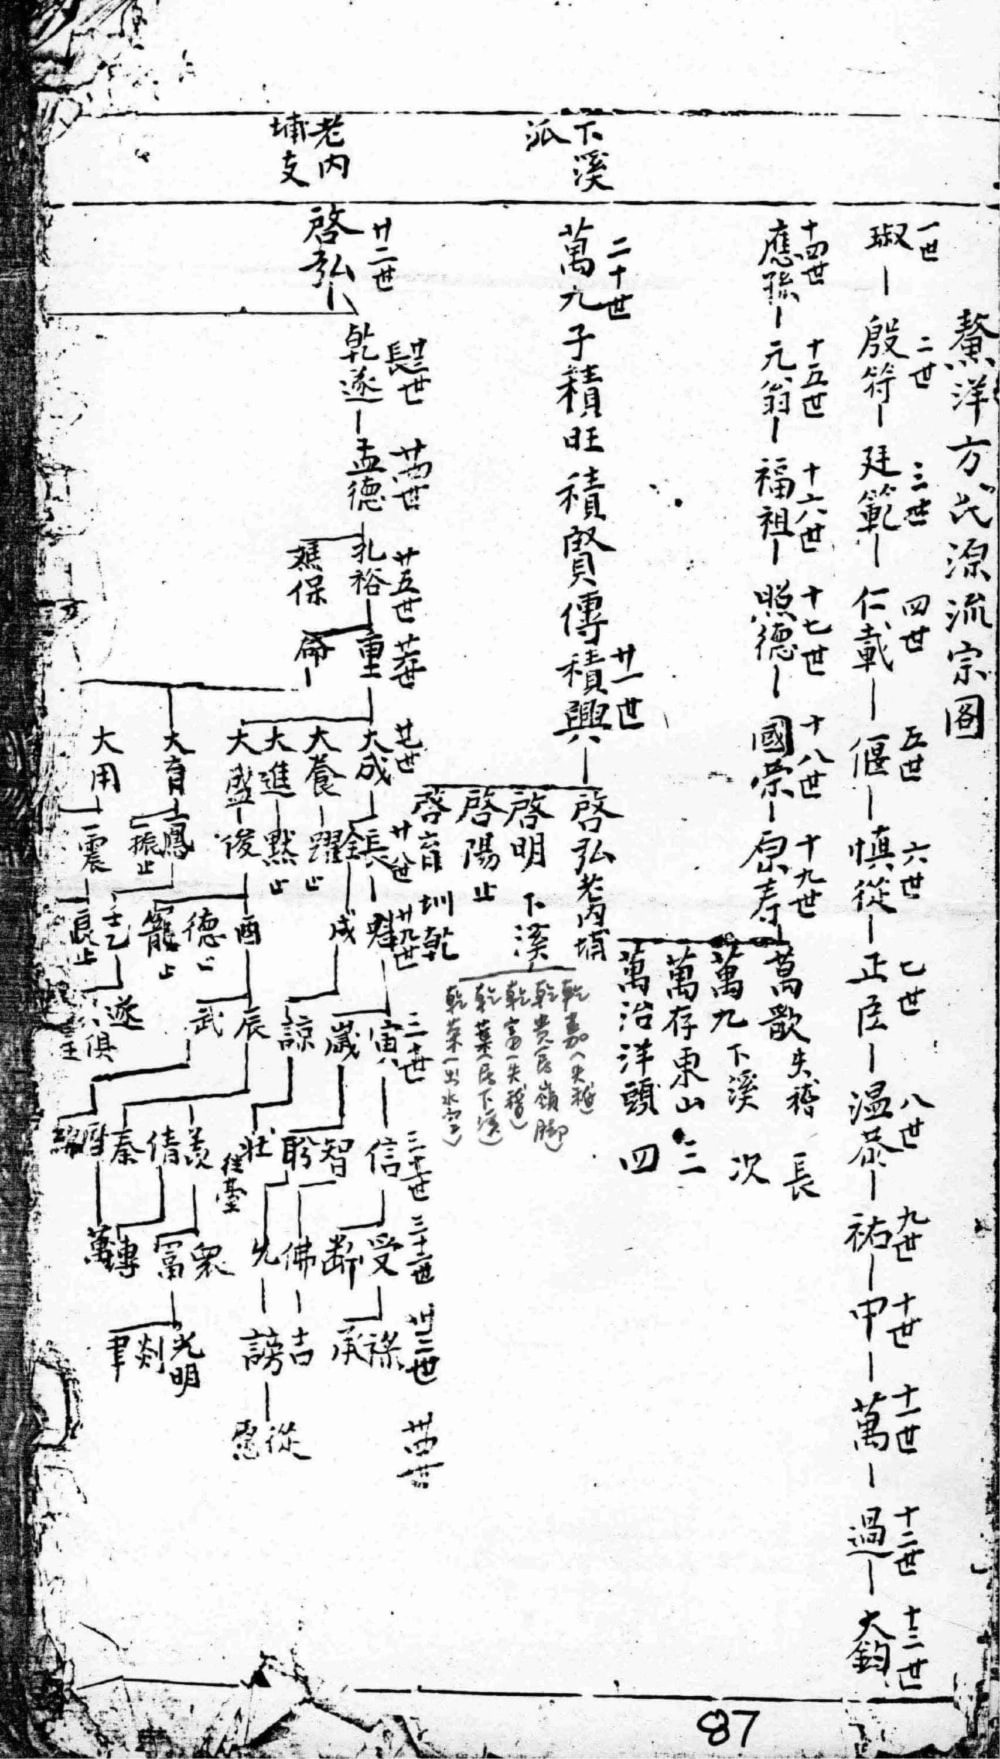 鰲洋方氏源流宗图
一世 二世 三世 四世 五世 六世 七世 八世 九世 十世 十一世 十二世 十三世
琡 殷符 廷範 仁載 偃 慎從 正臣 温恭 祐 中 萬 過 大鈞
十四世 十五世 十六世 十七世 十八世 十九世
應孫 元翁 福祖 照德 國荣 原寿
萬歆失稽 長
萬九下溪 次
萬存東山 三
萬治洋頭 四
下溪
派
二十世 廿一世
萬九子積旺積賢傳積興
啓弘老内埔
啓明 下溪
啓陽止
啓育 圳乾
乾嘉(失稽)
乾貴(居嶺脚)
乾富(失稽)
乾葉(居下溪)
老内
埔支
廿二世
啓弘
廿三世 廿四世 廿五世 廿六世 廿七世 廿八世 廿九世 三十世 三十一世 三十二世 卅三世 卅四世
長
乾遂 孟德 孔裕 重 大成 長 寅 信 受 祿
保 命 大養 躍止 全 成 歲 智 断 承
大進 默止 諒 聆 佛 吉
大盛 俊 酉 辰 壯 先 謗 從
德止 武 往臺
大育 鳳 寵止 羨 眾 光明
振止 倩 富 剡
大用 震 士乙 遂 秦 傳 聿
良止 俱 萬
87